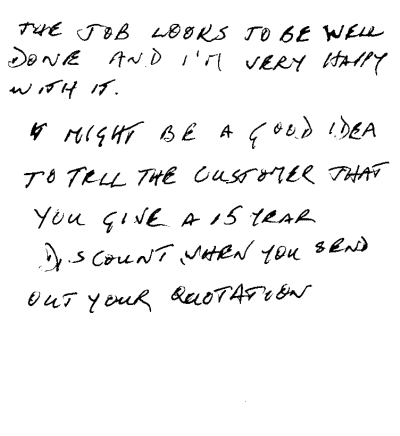 THE JOB LOOKS TO BE WELL
DONE AND I'M VERY HAPPY
WITH IT.
MIGHT BE A GOOD IDEA
TO TELL THE CUSTOMER THAT
YOU GIVE A 15 YEAR
DISCOUNT WHEN YOU SEND
OUT YOUR QUOTATION